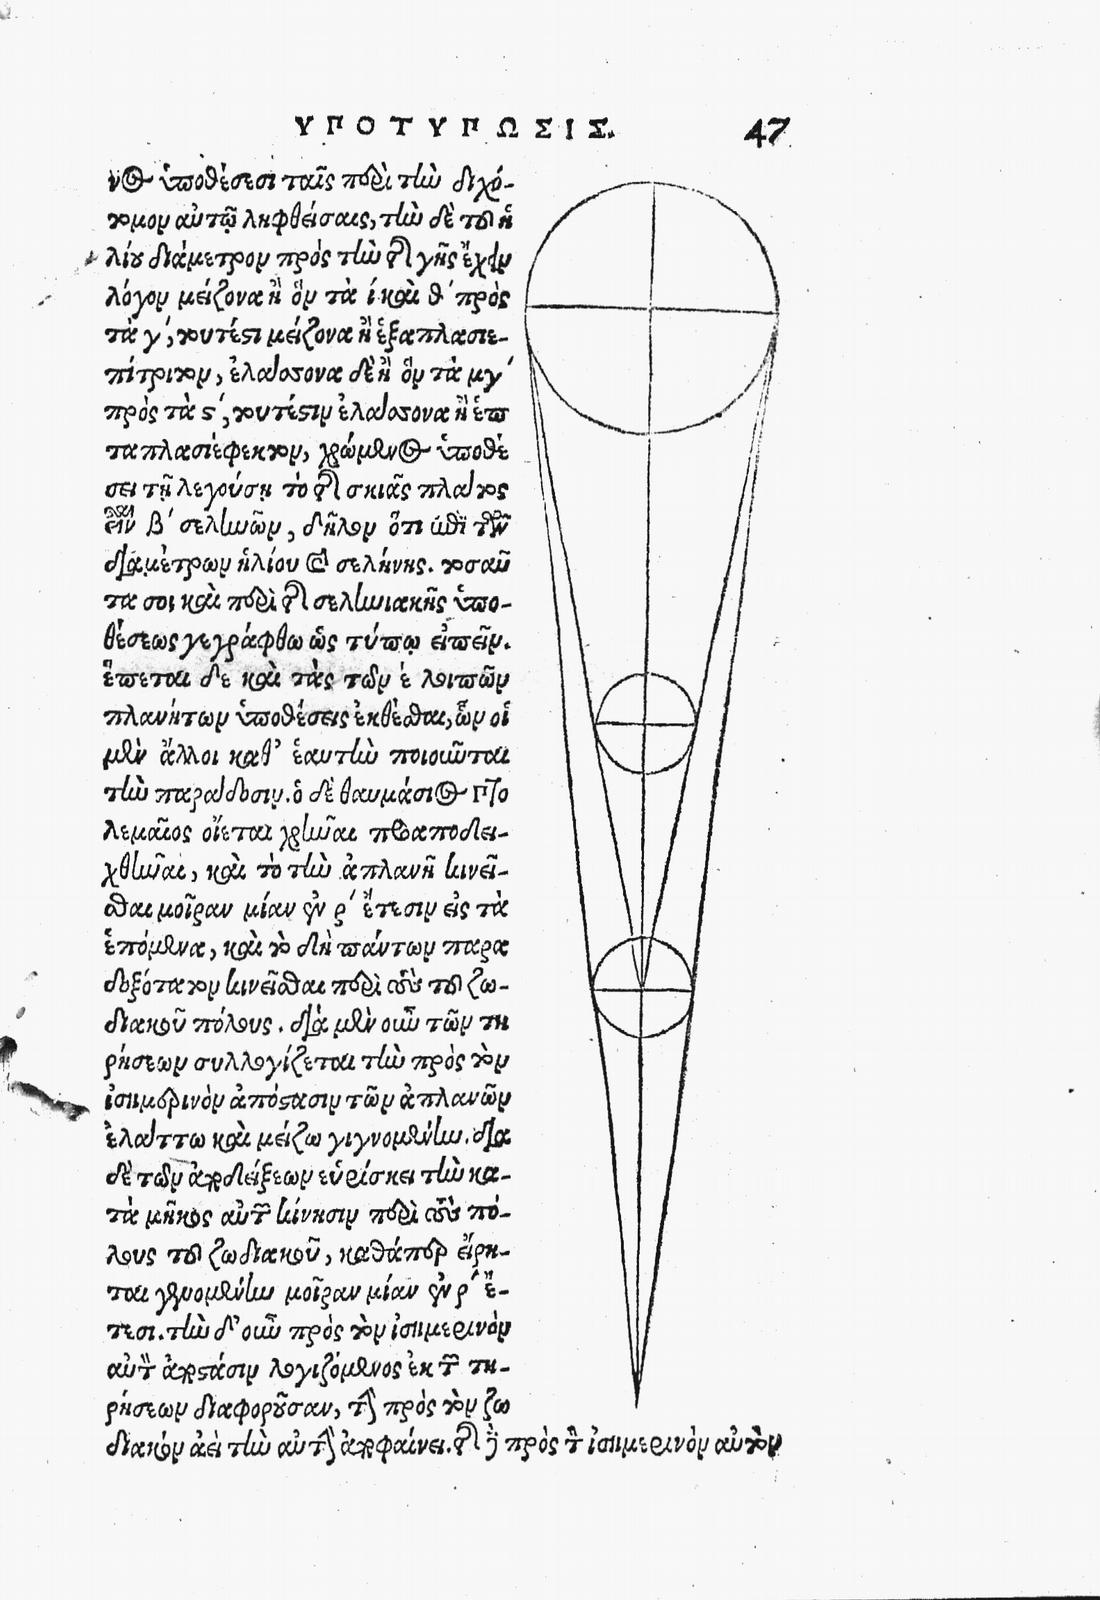 ΥΠΟΤΥΠΩΣΙΣ. 47
νος ὑποθέσεσι ταῖς περὶ τὴν διχό-
τομον αὐτῷ ληφθείσαις, τὴν δὲ τοῦ ἡ
λίου διάμετρον πρὸς τὴν τῆς γῆς ἔχειν
λόγον μείζονα ἢ ὃν τὰ ι καὶ θ´ πρὸς
τὰ γ´, τουτέστι μείζονα ἢ ἑξαπλασιε-
πίτριτον, ἐλάσσονα δὲ ἢ ὃν τὰ μγ´
πρὸς τὰ ς´, τουτέστιν ἐλάσσονα ἢ ἑπ
ταπλασιέφεκτον, χρώμενος ὑποθέ
σει τῇ λεγούσῃ τὸ τῆς σκιᾶς πλάτος
εἶναι β´ σεληνῶν, δῆλον ὅτι ἐπὶ τῶν
διαμέτρων ἡλίου καὶ σελήνης. τοσαῦ
τα σοι καὶ περὶ τῆς σεληνιακῆς ὑπο-
θέσεως γεγράφθω ὡς τύπῳ εἰπεῖν.
ἕπεται δὲ καὶ τὰς τῶν ε λοιπῶν
πλανήτων ὑποθέσεις ἐκθέσθαι, ὧν οἱ
μὲν ἄλλοι καθ᾽ ἑαυτὴν ποιοῦνται
τὴν παράδοσιν. ὁ δὲ θαυμάσιος Πτο
λεμαῖος οἴεται χρῆναι προαποδει-
χθῆναι, καὶ τὸ τὴν ἀπλανῆ κινεῖ-
σθαι μοῖραν μίαν ἐν ρ´ ἔτεσιν εἰς τὰ
ἑπόμενα, καὶ τὸ δὴ πάντων παρα
δοξότατον κινεῖσθαι περὶ τοὺς τοῦ ζω-
διακοῦ πόλους. διὰ μὲν οὖν τῶν τη
ρήσεων συλλογίζεται τὴν πρὸς τὸν
ἰσημερινὸν ἀπόστασιν τῶν ἀπλανῶν
ἐλάττω καὶ μείζω γιγνομένην. διὰ
δὲ τῶν ἀποδείξεων εὑρίσκει τὴν κα-
τὰ μῆκος αὐτῶν κίνησιν περὶ τοὺς πό-
λους τοῦ ζωδιακοῦ, καθάπερ εἴρη-
ται γενομένην μοῖραν μίαν ἐν ρ´ ἔ-
τεσι. τὴν δ᾽ οὖν πρὸς τὸν ἰσημερινὸν
αὐτῶν ἀπόστασιν λογιζόμενος ἐκ τῶν τη-
ρήσεων διαφοροῦσαν, τὴν πρὸς τὸν ζω
διακὸν ἀεὶ τὴν αὐτὴν ἀποφαίνει. τῆς γὰρ πρὸς τὸν ἰσημερινὸν αὐτὸν